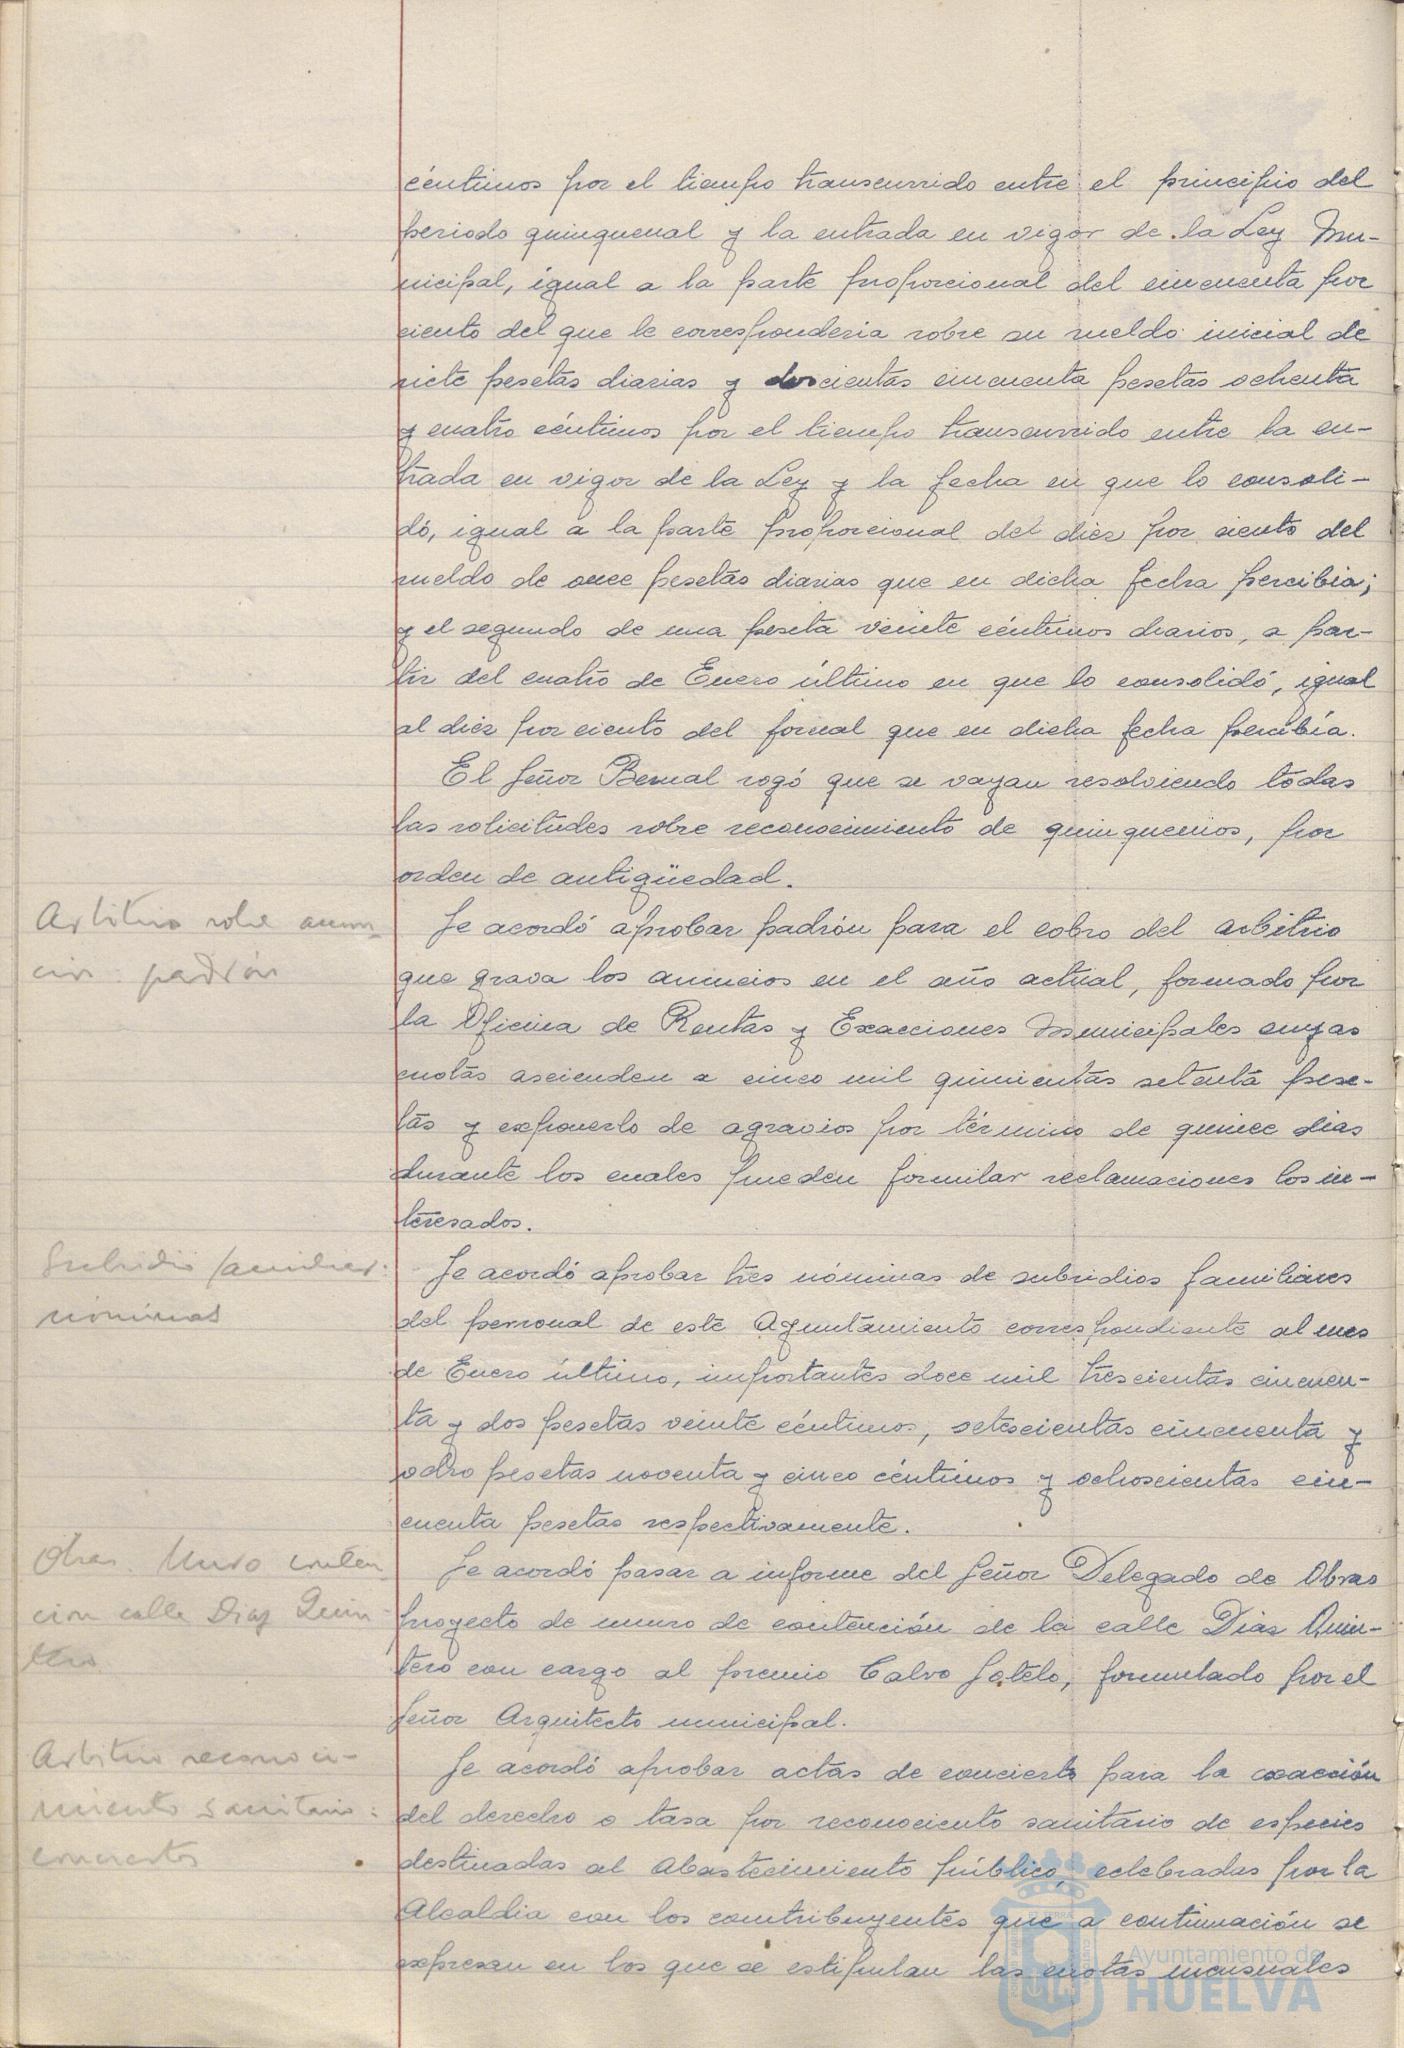 céntimos por el tiempo transcurrido entre el principio del
periodo quinquenal y la entrada en vigor de la Ley Mu-
nicipal, igual a la parte proporcional del cincuenta por
ciento del que le correspondería sobre su sueldo inicial de
siete pesetas diarias y doscientas cincuenta pesetas ochenta
y cuatro céntimos por el tiempo transcurrido entre la en-
trada en vigor de la Ley y la fecha en que lo consoli-
dó, igual a la parte proporcional del diez por ciento del
sueldo de once pesetas diarias que en dicha fecha percibia;
y el segundo de una peseta veinte céntimos diarios, a par-
tir del cuatro de Enero último en que lo consolidó, igual
al diez por ciento del jornal que en dicha fecha percibía.
El Señor Bernal rogó que se vayan resolviendo todas
las solicitudes sobre reconocimiento de quinquenios, por
orden de antigüedad.
Arbitrio sobre anun-
cios: padrón
Se acordó aprobar padrón para el cobro del arbitrio
que grava los anuncios en el año actual, formado por
la Oficina de Rentas y Exacciones Municipales cuyas
cuotas ascienden a cinco mil quinientas setenta pese-
tas y exponerlo de agravios por término de quince dias
durante los cuales pueden formular reclamaciones los in-
teresados.
Subsidio familiar:
nóminas
Se acordó aprobar tres nóminas de subsidios familiares
del personal de este Ayuntamiento correspondiente al mes
de Enero último, importantes doce mil trescientas cincuen-
ta y dos pesetas veinte céntimos, setescientas cincuenta y
ocho pesetas noventa y cinco céntimos y ochoscientas cin-
cuenta pesetas respectivamente.
Obras. Muro conten-
cion calle Diaz Quin-
tero
Se acordó pasar a informe del Señor Delegado de Obras
proyecto de muro de contención de la calle Diaz Quin-
tero con cargo al premio Calvo Sotelo, formulado por el
Señor Arquitecto municipal.
Arbitrio reconoci-
miento sanitario:
conciertos
Se acordó aprobar actas de concierto para la exacción
del derecho o tasa por reconociento sanitario de especies
destinadas al Abastecimiento público, celebradas por la
Alcaldia con los contribuyentes que a continuación se
expresan en los que se estipulan las cuotas mensuales
Ayuntamiento de
HUELVA